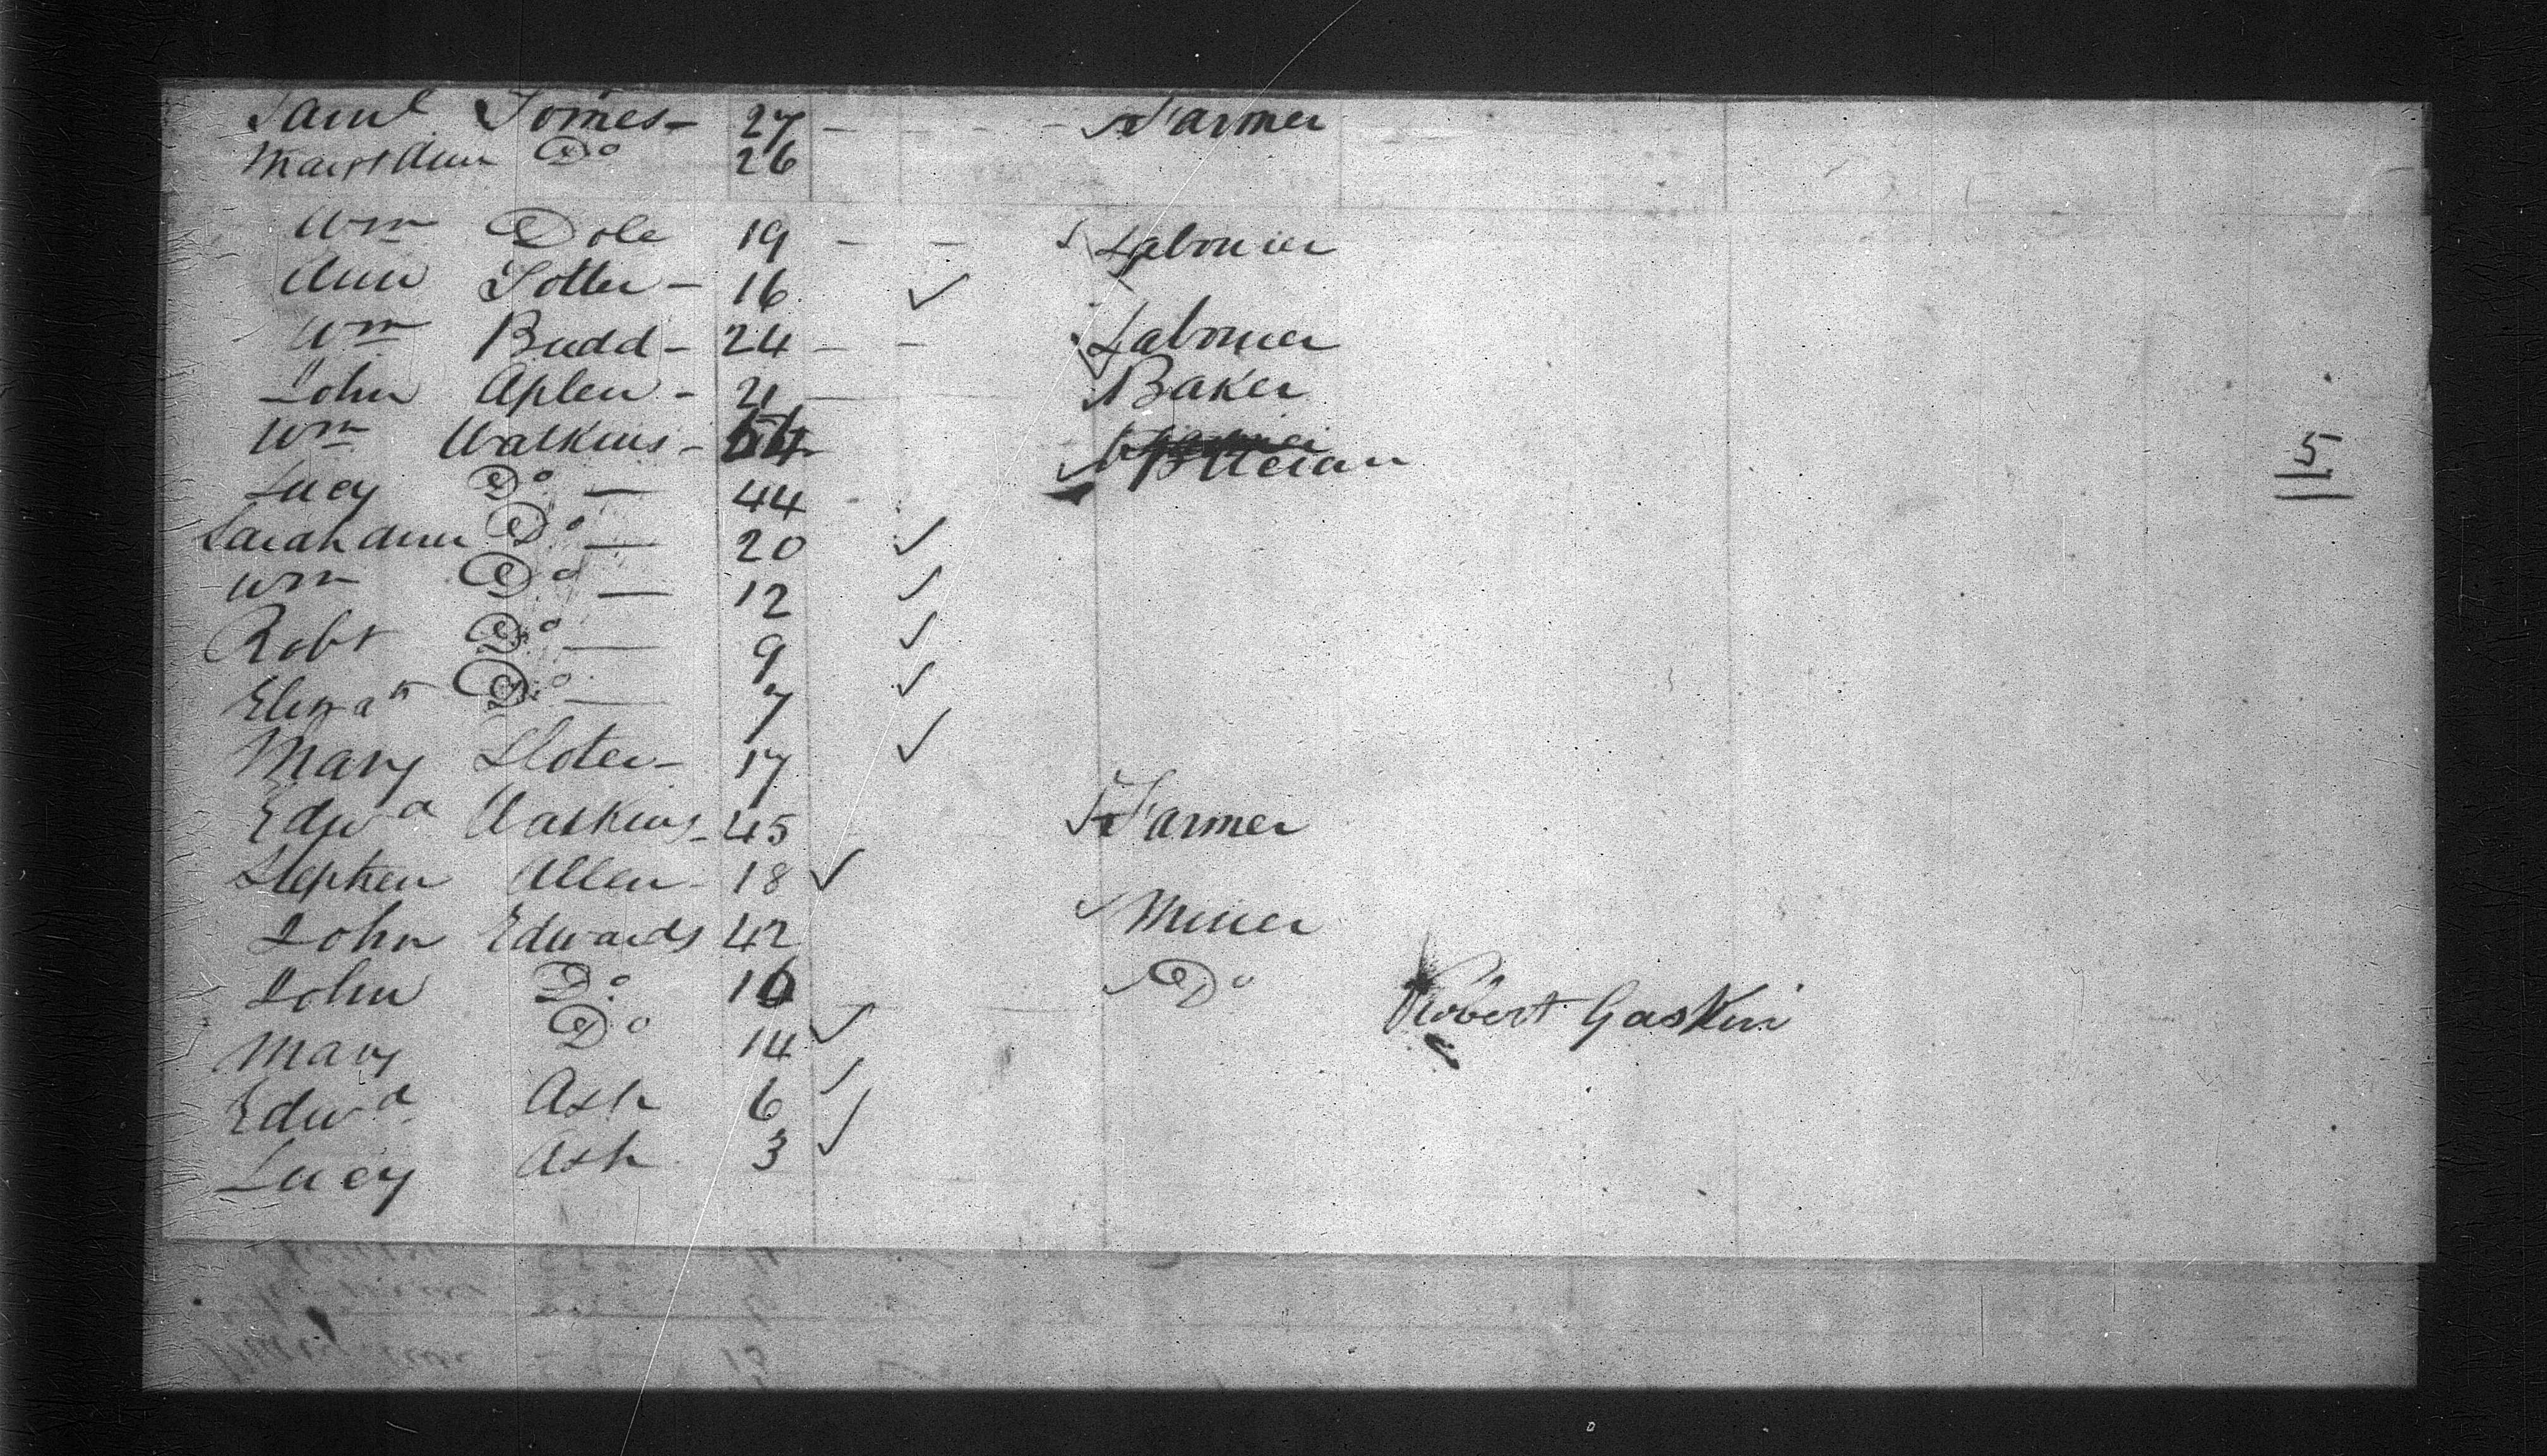 Saml Tomes - 27 - - - - Farmer
Mary Ann Do 26
Wm Dole 19 - - Labourer
Ann Potter - 16 ✓
Wm Budd - 24 - - Labourer
John Aplen - 21 Baker
Wm Watkins -
Lucy Do — 44
Sarah Ann Do — 20 ✓
Wm Do — 12 ✓
Robt Do — 9 ✓
Elizath Do — 7 ✓
Mary Sloter - 17 ✓
Edwd Watkins - 45 Farmer
Stephen Allen - 18 ✓
John Edwards 42 Miner
John Do 16 Do
Mary Do 14 ✓
Edwd Ash 6 ✓
Lucy Ash 3 ✓
5
Robert Gaskin